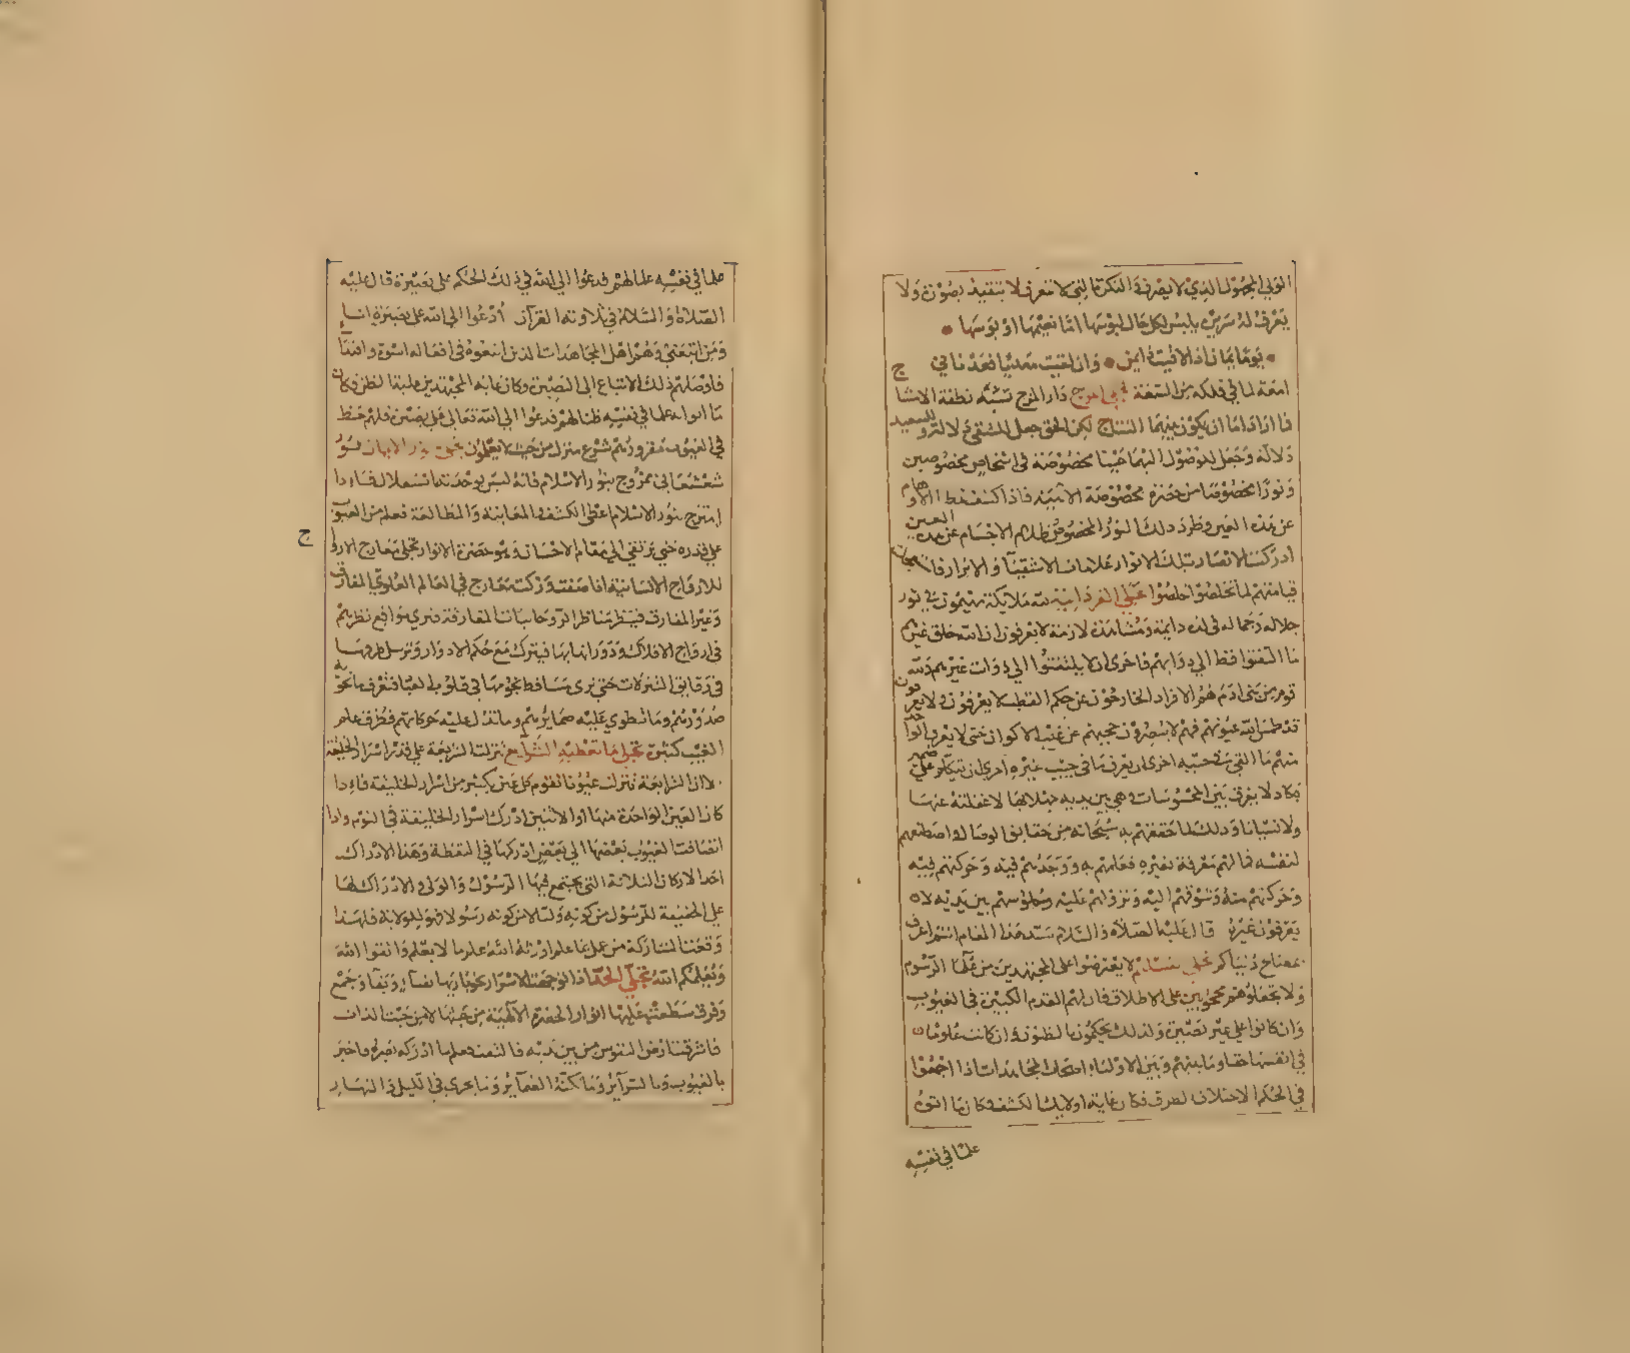 الولي المجهول الذي لا يعرف والنكرة التي لا تتعرف لا يتقيد بصورة ولا
يعرف له سريرة يلبس لكل حال لبوسها اما نعيمها او بوسها
يوما يمان اذا لاقيت ذا يمن وان لقيت معديا فعدناني
امعة لما في فلكه من السعة تجلي المزج دار المزج تشبه نطفة الامشاج
فما اراد اما ان يكون بينهما النتاج لكن الحق جعل للشقي دلالة وللسعيد
دلالة وجعل للوصول اليهما عينا مخصوصة في اشخاص مخصوصين
ونورا مخصوصا من حضرة مخصوصة الاهية فاذا كشف غطا الاوهام
عن هذه العين وطرد ذلك النور المخصوص ظلام الاجسام عن هذه العين
ادركت الابصار بتلك الانوار علامات الاشقيا والابرار
قيامتهم لما تخلصوا خلصوا تجلي الفردانية لله ملايكة مهيمون في نور
جلاله وجماله في لذة دايمة ومشاهدة لازمة لا يعرفون ان الله خلق غيرهم
ما التفتوا قط الي ذواتهم فاحرى ان لا يلتفتوا الي ذوات غيرهم ولله
قوم من بني ادم هم الافراد الخارجون عن حكم القطب لا يعرفون ولا يعرفون
قد طمس الله عيونهم فهم لا يبصرون حجبهم عن غيب الاكوان حتى لا يعرف الواحد
منهم ما القي في جيبه احرى ان يعرف ما في جيب غيره احري ان يتكلم على ضمير
يكاد لا يفرق بين المحسوسات وهي بين يديه جهلا بها لا غفلة عنها
ولا نسيانا وذلك لما حققهم به سبحانه من حقايق الوصال واصطنعهم
لنفسه فما لهم معرفة بغيره فعلمهم به ووجدهم فيه وحركتهم فيه
وحركتهم منه وشوقهم اليه ونزولهم عليه وجلوسهم بين يديه لا
يعرفون غيره قال عليه الصلاة والسلام سيد هذا المقام انتم اعرف
بمصالح دنياكم تجلي تسليم لا يعترضوا على المجتهدين من علما الرسوم
ولا تجعلوهم محجوبين على الاطلاق فان لهم القدم الكبيرة في الغيوب
وان كانوا علي غير بصيرة ولذلك يحكمون بالظنون وان كانت علوما
في انفسها حقا وما بينهم وبين الاولياء اصحاب المجاهدات اذا اجتمعوا
في الحكم الا اختلاف الطرق فكان غاية اولايك الكشف فكان ما اتي
علما في نفسه
علما في نفسه علما لهم فدعوا الي الله في ذلك الحكم على بصيرة قال عليه
الصلاة والسلام في تلاوته القرآن أدعوا الى الله على بصيرة انا
ومن اتبعني وهم اهل المجاهدات الذين اتبعوه في افعاله اسوة واقتدا
فاوصلهم ذلك الاتباع الى البصيرة وكان غاية المجتهدين غلبة الظن وكان
ما اتوا به علما في نفسه ظنا لهم فدعوا الي الله تعالى على بصيرة فلهم حظ
في الغيوب مقرر ولهم شرع منزل من حيث لا يعلمون تجلي نور الايمان نور
شعشعاني ممزوج بنور الاسلام فانه ليس يوحد مستقلا فاذا
امتزج بنور الاسلام اعطى الكشف والمعاينة والمطالعة فعلم من الغيوب
علي قدره حتي يرتقي الي مقام الاحسان وهو حضرة الانوار تجلي معارج الارواح
للارواح الانسانية اذا صفت وزكت معارج في العالم العلوي المفارق
وغير المفارق فينظر مناظر الروحانيات المفارقة فترى مواقع نظرهم
في ارواح الافلاك ودورانها بها فيترك مع حكم الادوار وترسل طرفها
في رقايق التنزلات حتى ترى مساقط نجومها في قلوب العباد فتعرف ما تحويه
صدورهم وما تنطوي عليه ضمايرهم وما تدل عليه حركاتهم فطرق علم
الغيب كثيرة تجلي ما تعطيه الشرايع تنزلت الشريعة على قدر اسرار الخليقة
الا ان الشرايعة تنزلت عيونا تقوم كل عين بكثير من اسرار الخليقة فاذا
كان العين الواحدة منها او الاثنين ادرك اسرار الخليقة في النوم واذا
انضافت الغيوب بعضها الي بعض ادركها في اليقظة وهذا الادراك
احد الاركان الثلاثة التي يجتمع فيها الرسول والولي والادراك لها
علي الحقيقة للرسول من كونه وليا لا من كونه رسولا فهو للولاية فلهذا
وقعت المشاركة من عمل بما علم اورثه الله علم ما لا يعلم واتقوا الله
ويعلمكم الله تجلي الحد اذا توجهت الاسرار نحو باريها بفناء وبقا وجمع
وفرق سطعت عليها انوار الحضرة الالهية من حيثها لا من حيث الذات
فاشرقت ارض النفوس من بين يديه فالتفت فعلم ما ادركه بصره فاخبر
بالغيوب وبالسراير وما تكنه الضماير وما يجري في الليل والنهار